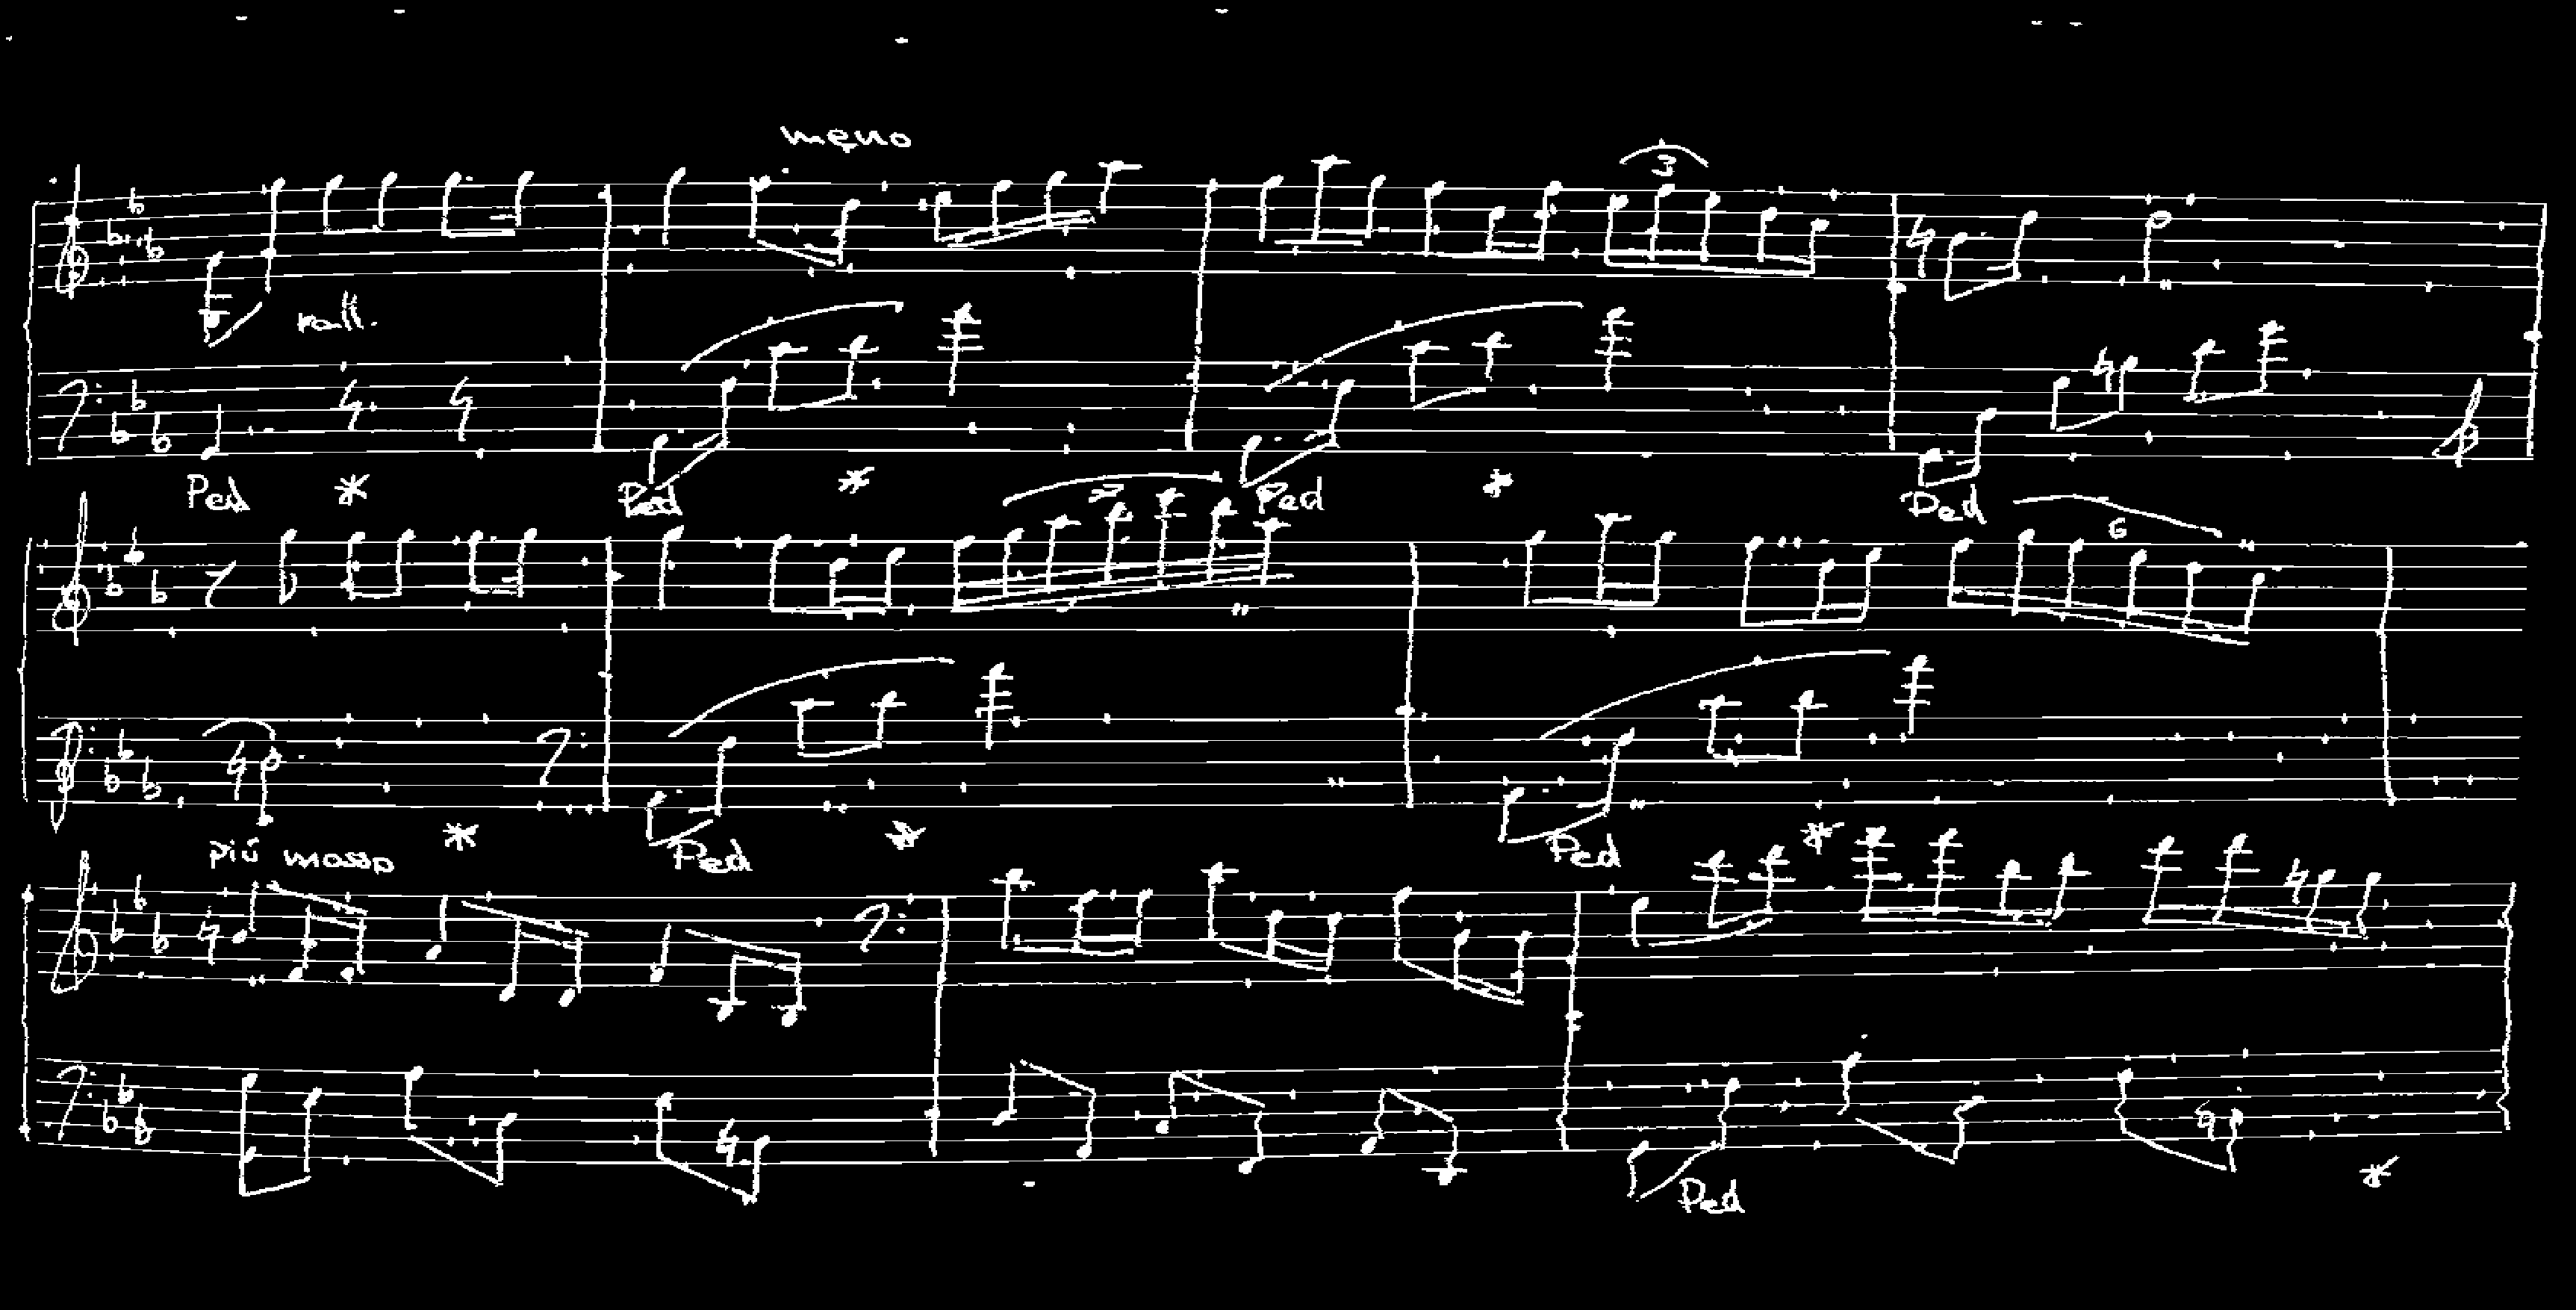 meno
3
rall.
Ped * Ped * Ped * Ped
7 6
* Ped * Ped *
più mosso
Ped *